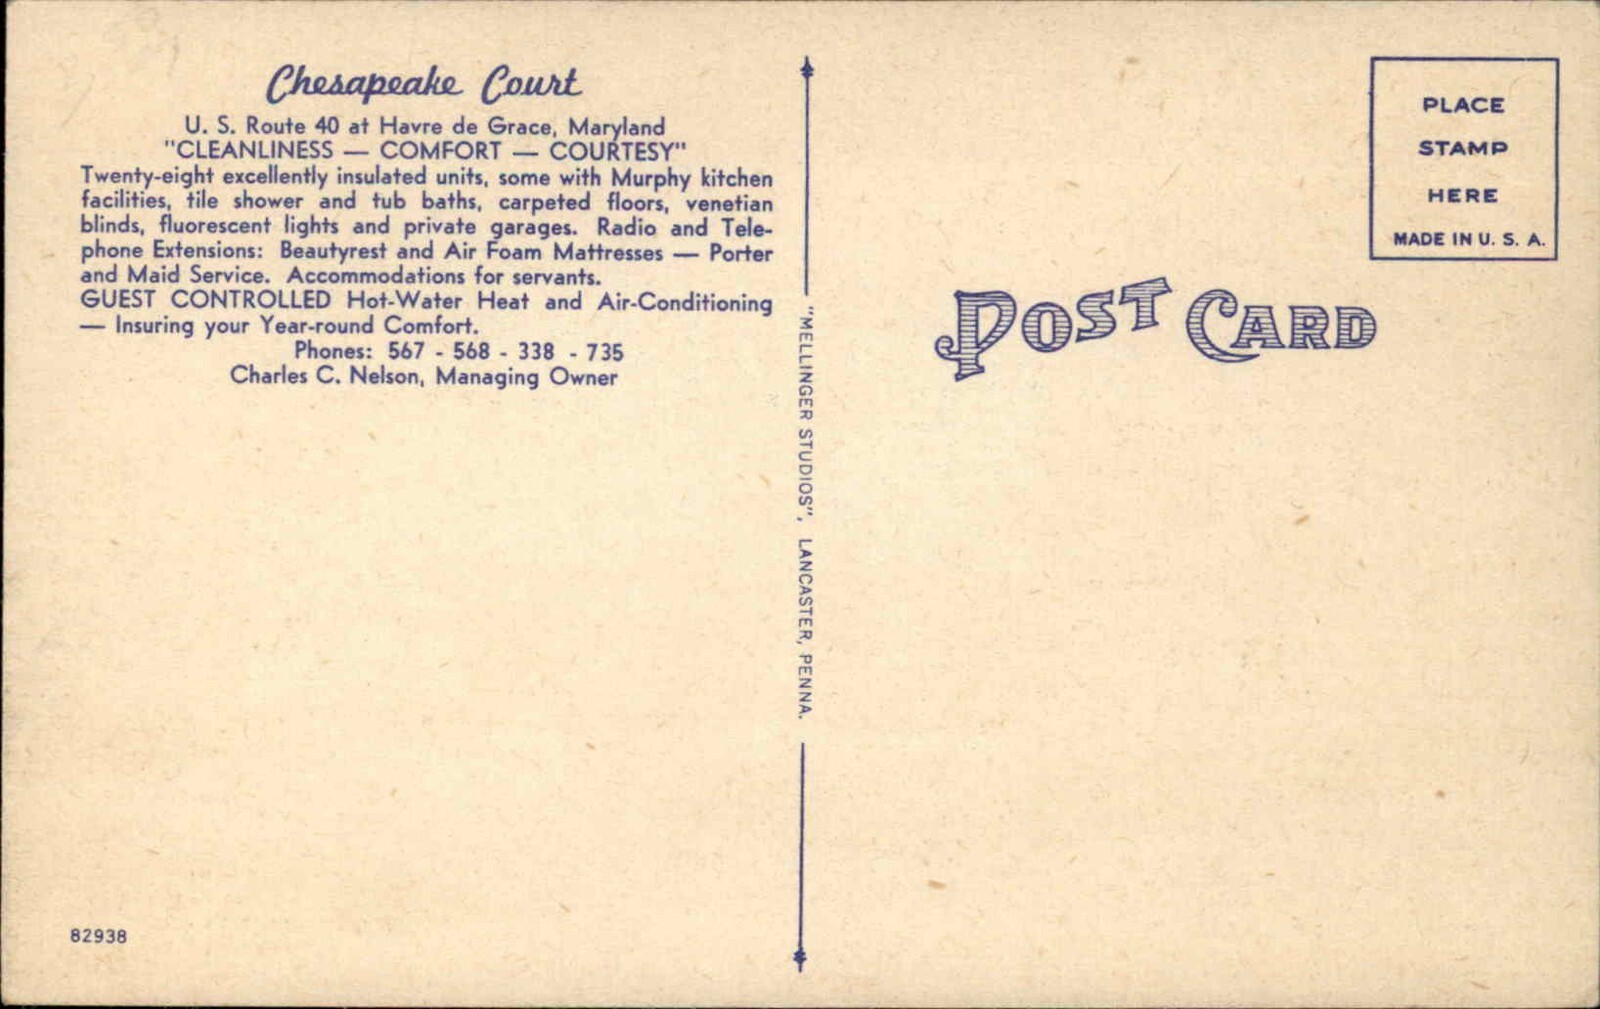 Chesapeake Court
U. S. Route 40 at Havre de Grace, Maryland
"CLEANLINESS — COMFORT — COURTESY"
Twenty-eight excellently insulated units, some with Murphy kitchen
facilities, tile shower and tub baths, carpeted floors, venetian
blinds, fluorescent lights and private garages. Radio and Tele-
phone Extensions: Beautyrest and Air Foam Mattresses — Porter
and Maid Service. Accommodations for servants.
GUEST CONTROLLED Hot-Water Heat and Air-Conditioning
— Insuring your Year-round Comfort.
Phones: 567 - 568 - 338 - 735
Charles C. Nelson, Managing Owner
82938
"MELLINGER STUDIOS", LANCASTER, PENNA.
POST CARD
PLACE
STAMP
HERE
MADE IN U. S. A.